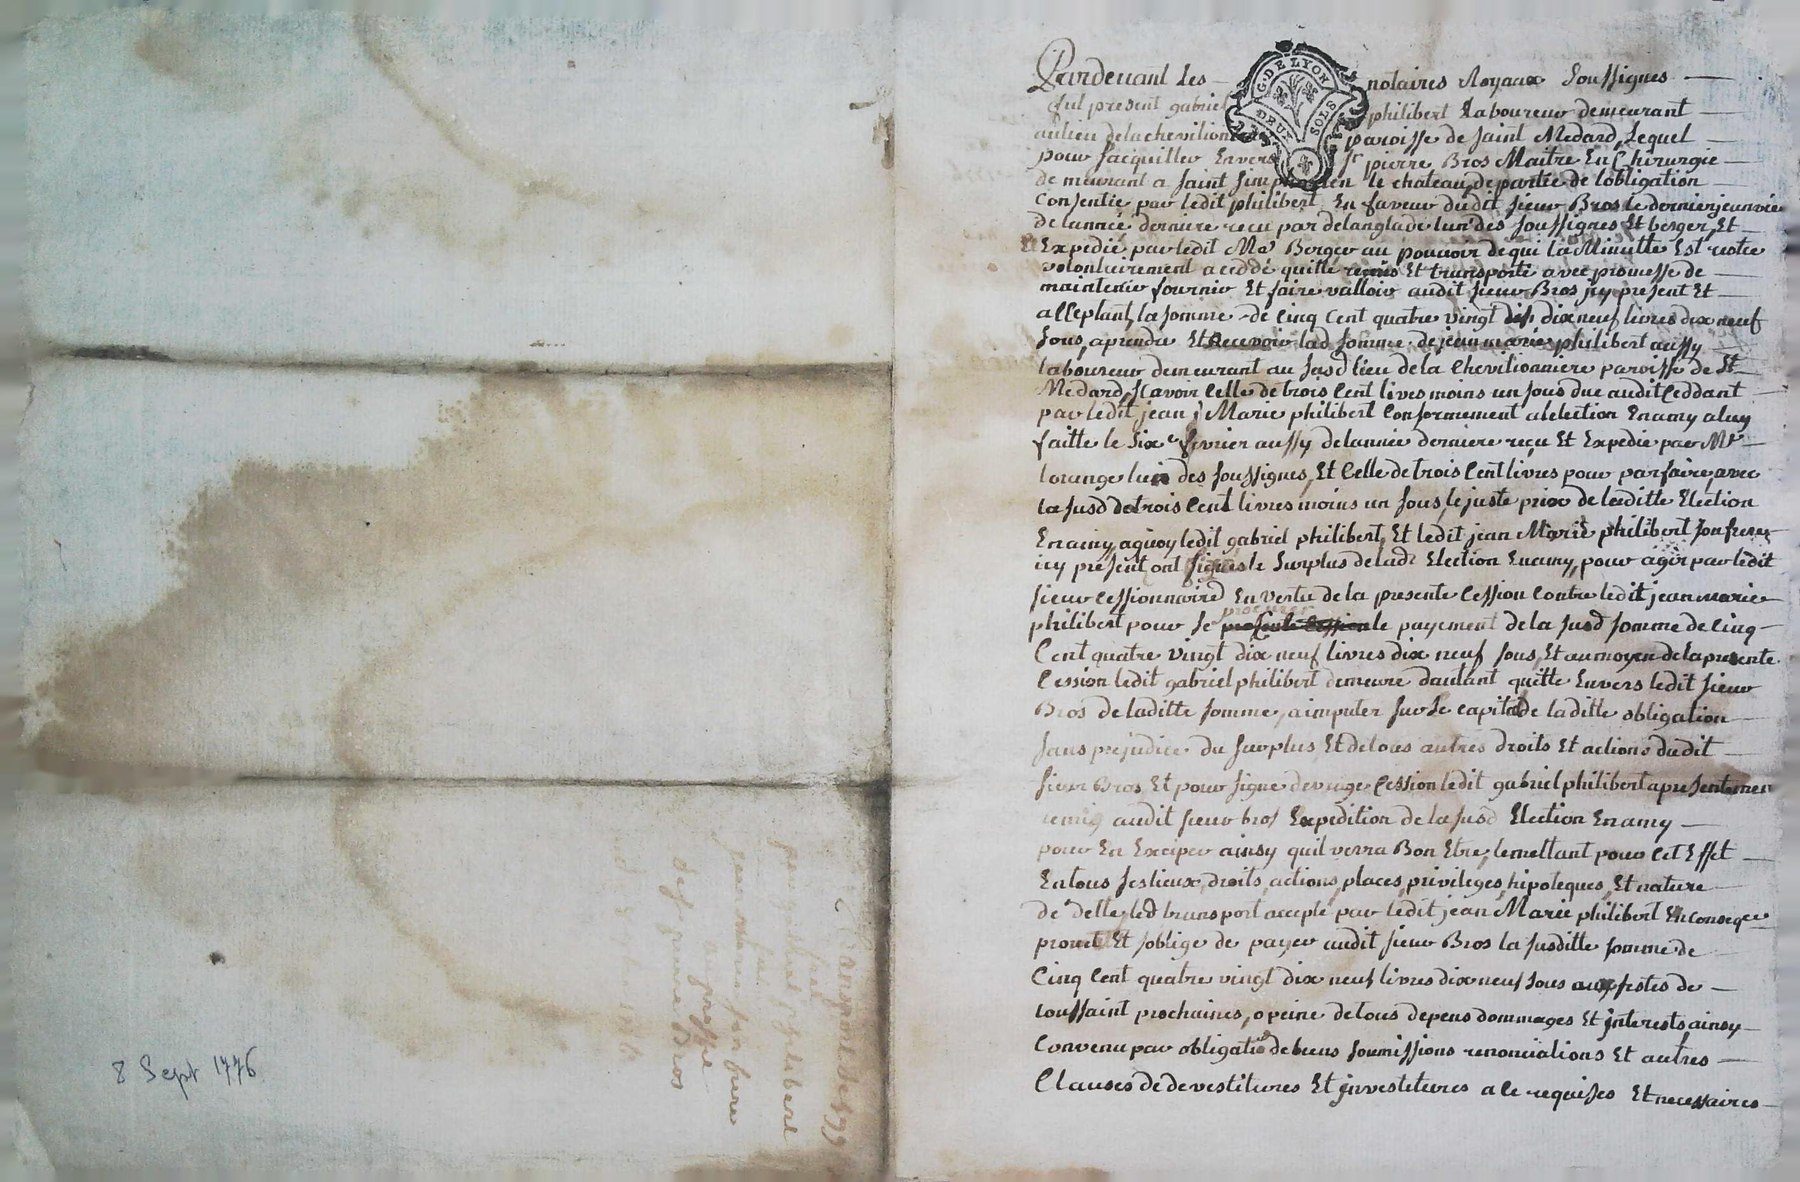 8 Sept 1776
G. DE LYON
DEUX SOLS
Pardevant Les notaires Royaux Soussignes
fut present gabriel philibert Laboureur demeurant
au lieu de la chevilionniere paroisse de Saint Medard, Lequel
pour sacquiller Envers Sr pierre Bros Maitre En Chirurgie
demeurant a Saint Simphorien le chateau, de partie de lobligation
Consentie par ledit philibert En faveur dudit sieur Bros le dernier jeanvier
de lannée derniere recu par delanglade lun des soussignes Et berger, Et
Expedié par ledit Me Berger au pouvoir de qui la Minutte Est restée
volontairement a ceddé quitté remis Et transporté avec promesse de
maintenir fournir Et faire valloir audit sieur Bros jcy present Et
acceptant, la somme de Cinq Cent quatre vingt dix neuf livres dix neuf
sous, aprendre Et Recevoir lad somme de jean marie philibert aussy
laboureur demeurant au susd lieu de la Chevilionniere paroisse de St
Medard, scavoir Celle de trois Cent livres moins un sous due audit Ceddant
par ledit jean Marie philibert Conformement a lelection En amy a luy
faitte le six fevrier aussy de lannée derniere reçu Et Expedié par Me
lorange lun des soussignes, Et Celle de trois Cent livres pour parfaire, avec
la susd de trois Cent livres moins un sous, le juste prix de laditte Election
En amy, aquoy ledit gabriel philibert, Et ledit jean Marie philibert son frere
icy present ont le surplus de lad Election En amy, pour agir par ledit
sieur Cessionnaire En vertu de la presente Cession Contre ledit jean marie
philibert pour se procurer le payement de la susd somme de Cinq
Cent quatre vingt dix neuf livres dix neuf sous, Et au moyen de la presente
Cession ledit gabriel philibert demeure dautant quitte Envers ledit sieur
Bros de laditte somme, a imputer sur le capital de laditte obligation
sans prejudice du surplus Et de tous autres droits Et actions dudit
sieur Bros Et pour signe de Cession ledit gabriel philibert a presentement
remis audit sieur bros Expedition de la susd Election En amy
pour En Exciper ainsy quil verra Bon Etre, le mettant pour Cet Effet
En tous ses lieux, droits, actions, places, privileges, hipoteques, Et nature
de delle, led transport accepté par ledit jean Marie philibert En conseqce
promet Et soblige de payer audit sieur Bros la susditte somme de
Cinq Cent quatre vingt dix neuf livres dix neuf sous aux festes de
toussaint prochaines, a peine de tous depens dommages Et jnterests ainsy
Convenu par obligation de biens soumissions renonciations Et autres
Clauses de devestitures Et jnvestitures a Ce requises Et necessaires
par gabriel philibert
jean marie son frere
au proffit
de sr pierre Bros